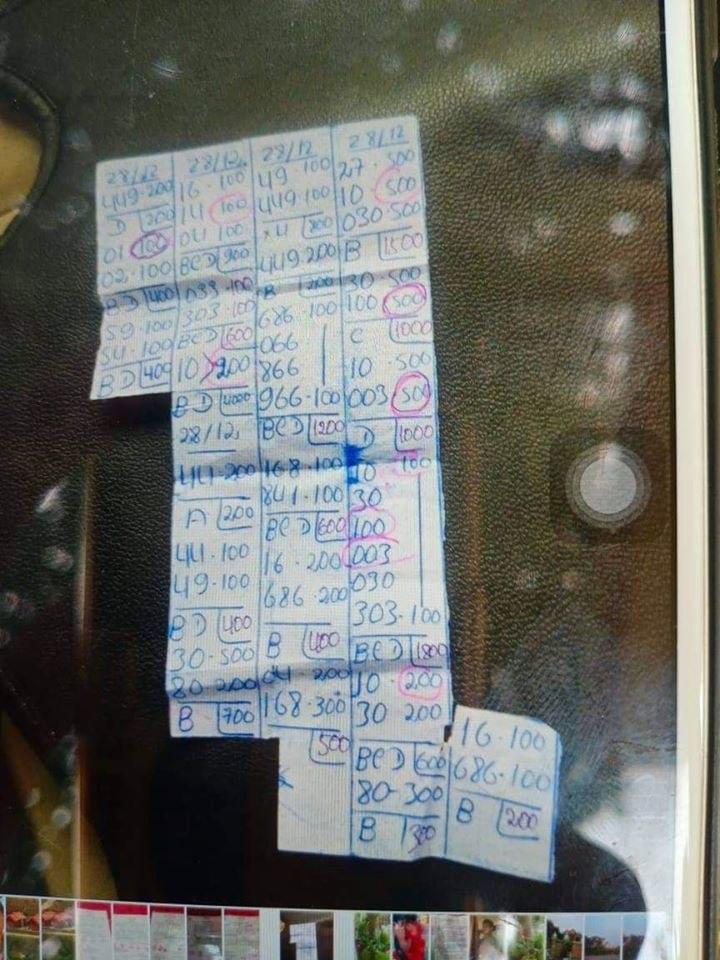 28/12
449-200
D 200
01 100
02-100
BD 400
59-100
54-100
BD 400
28/12
16-100
14 100
04 100
BCD 900
033-100
303-100
BCD 600
10 200
BD 4000
28/12
44-200
A 200
44-100
49-100
BD 400
30-500
80-200
B 700
28/12
49-100
449-100
800
449-200
B 200
686-100
066
866
966-100
BCD 1200
168-100
841-100
BCD 600
16-200
686-200
B 400
04 200
168-300
500
28/12
27-500
10 500
030-500
B 1500
30-500
100 500
C 1000
10-500
003 500
D 1000
10 100
30
100
003
030
303-100
BCD 1800
10-200
30 200
BCD 600
80-300
B 300
16-100
686-100
B 200